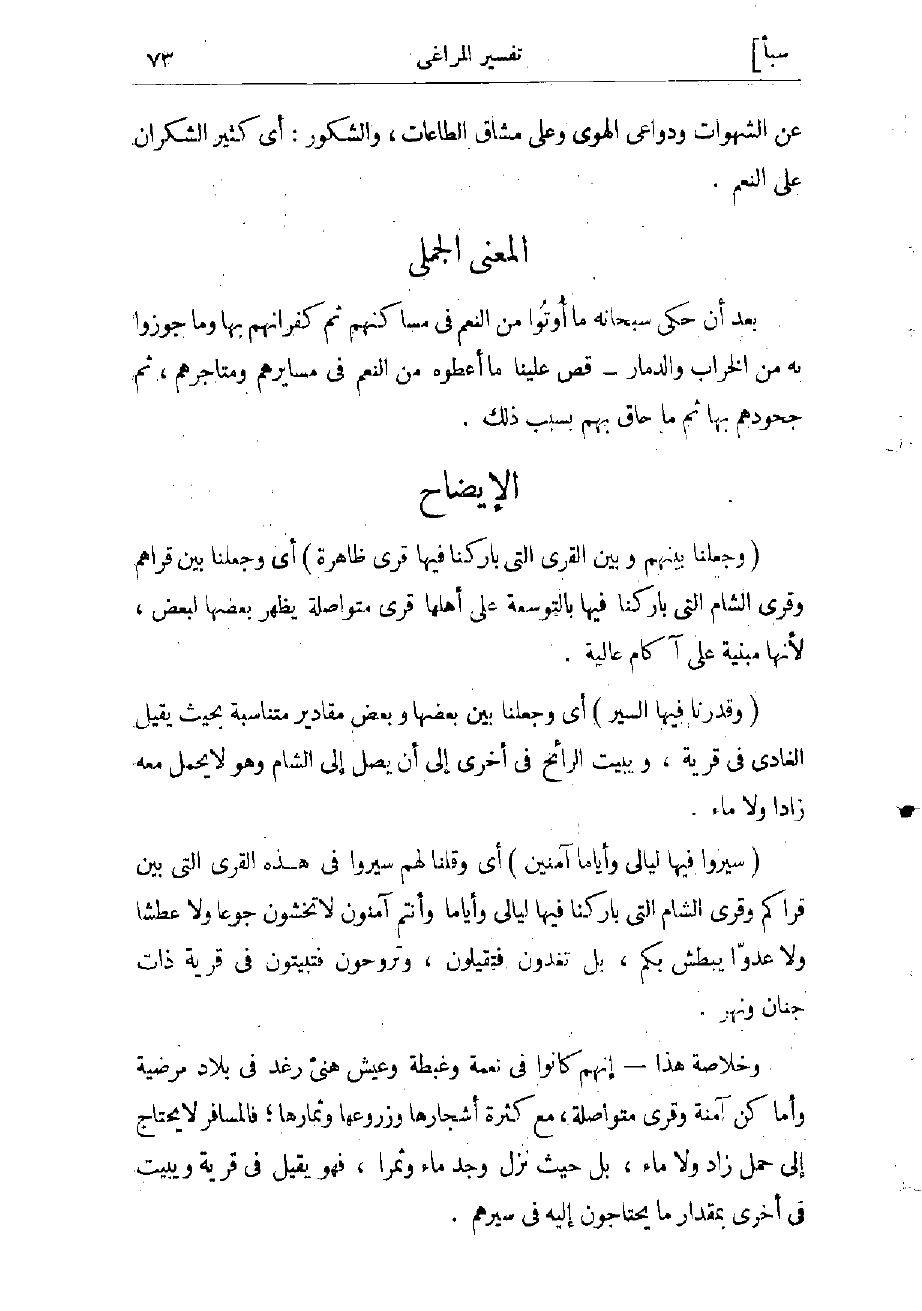 سبأ]
تفسير المراغى
٧٣
عن الشهوات ودواعى الهوى وعلى مشاق الطاعات ، والشكور : أى كثير الشكران
على النعم .
المعنى الجملى
بعد أن حكى سبحانه ما أُوتُوا من النعم فى مساكنهم ثم كفرانهم بها وما جوزوا
به من الخراب والدمار – قص علينا ما أعطوه من النعم فى مسايرهم ومتاجرهم ، ثم
جحودهم بها ثم ما حاق بهم بسبب ذلك .
الإيضاح
( وجعلنا بينهم وبين القرى التى باركنا فيها قرى ظاهرة ) أى وجعلنا بين قراهم
وقرى الشام التى باركنا فيها بالتوسعة على أهلها قرى متواصلة يظهر بعضها لبعض ،
لأنها مبنية على آكام عالية .
( وقدرنا فيها السير ) أى وجعلنا بين بعضها وبعض مقادير متناسبة بحيث يقيل
الغادى فى قرية ، ويبيت الرائح فى أخرى إلى أن يصل إلى الشام وهو لا يحمل معه
زادا ولا ماء .
( سيروا فيها ليالى وأياما آمنين ) أى وقلنا لهم سيروا فى هـذه القرى التى بين
قراكم وقرى الشام التى باركنا فيها ليالى وأياما وأنتم آمنون لا تخشون جوعا ولا عطشا
ولا عدوّا يبطش بكم ، بل تغدون فتقيلون ، وتروحون فتبيتون فى قرية ذات
جنان ونهر .
وخلاصة هذا – إنهم كانوا فى نعمة وغبطة وعيش هنىّ رغد فى بلاد مرضية
وأماكن آمنة وقرى متواصلة ، مع كثرة أشجارها وزروعها وثمارها ؛ فالمسافر لا يحتاج
إلى حمل زاد ولا ماء ، بل حيث نزل وجد ماء وثمرا ، فهو يقيل فى قرية ويبيت
فى أخرى بمقدار ما يحتاجون إليه فى سيرهم .